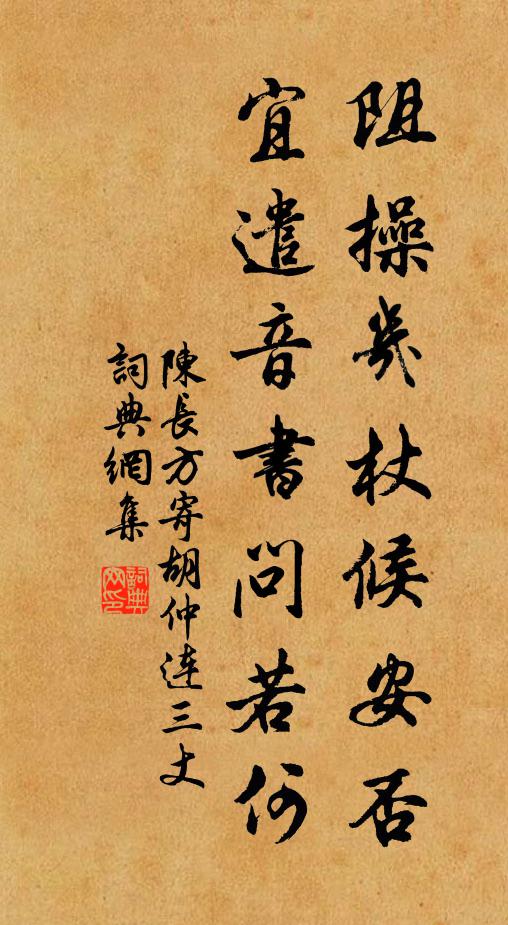 阻操幾杖候安否
宜遣音書問若何
陳長方寄胡仲連三丈
詞典網集
詞典網印